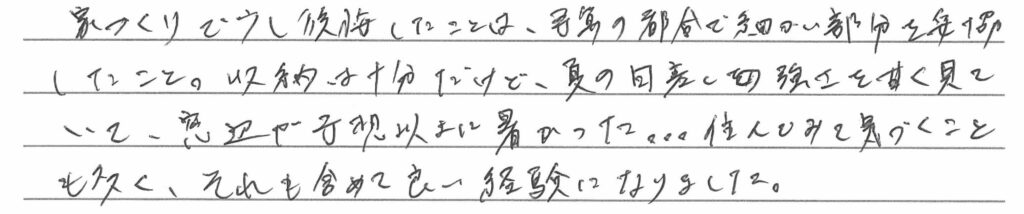 家づくりで少し後悔したことは、予算の都合で細かい部分を妥協
したこと。収納は十分だけど、夏の日差しの強さを甘く見て
いて、窓辺が予想以上に暑かった...住んでみて気づくこと
も多く、それも含めて良い経験になりました。